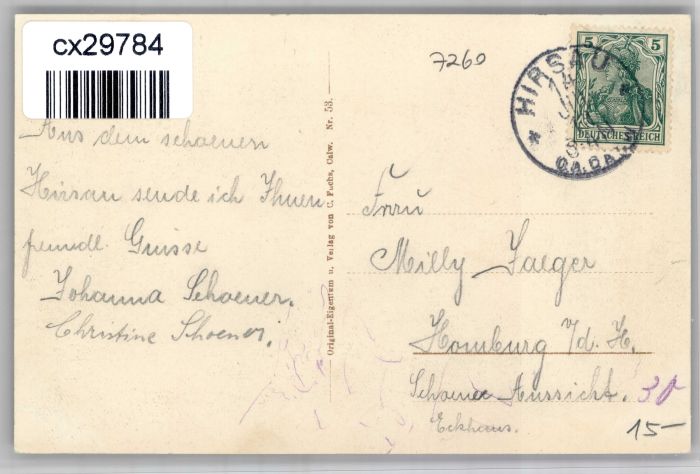 cx29784
7260
5 5
DEUTSCHES REICH
* HIRSAU *
O.A.CALW
Aus dem schoenen
Hirsau sende ich Ihnen
freundl. Gruisse
Johanna Schoener.
Christine Schoener.
Original-Eigentum u. Verlag von C. Fuchs, Calw. Nr. 53.
Frau
Milly Jaeger
Homburg v/d. H.
Schoene Aussicht. 30
Eckhaus.
15-